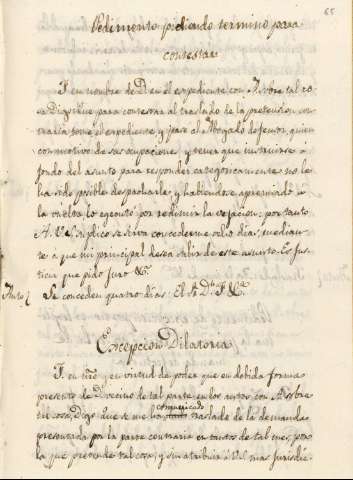 65
Pedimento pidiendo termino para
contestar
F. en nombre de D. en el expediente con N. sobre tal co
sa Digo: Que para contestar al traslado de la pretension con
traria tomé el expediente y pasé al Abogado defensor, quien
con motivo de sus ocupaciones y tener que instruirse à
fondo del asunto para responder categoricamente no le
ha sido posible despacharle, y habiendose apremiado à
la vuelta lo egecuto por redimir la vejacion: por tanto
A. V.S. suplico se sirva concederme ocho dias, median
te a que mi principal desea salir de este asunto. Es Jus
ticia que pido juro &c.
Auto. Se conceden quatro dias. El S. D. F. &c.
Excepcion Dilatoria
F. en nre. y en virtud de poder que en debida forma
presento de D. vecino de tal parte en los autos con A. sobre
tal cosa, Digo: que se me ha comunicado traslado de la demanda
presentada por la parte contraria en tantos de tal mes, por
la que pretende tal cosa, y sin atribuir à V.S. mas jurisdic-